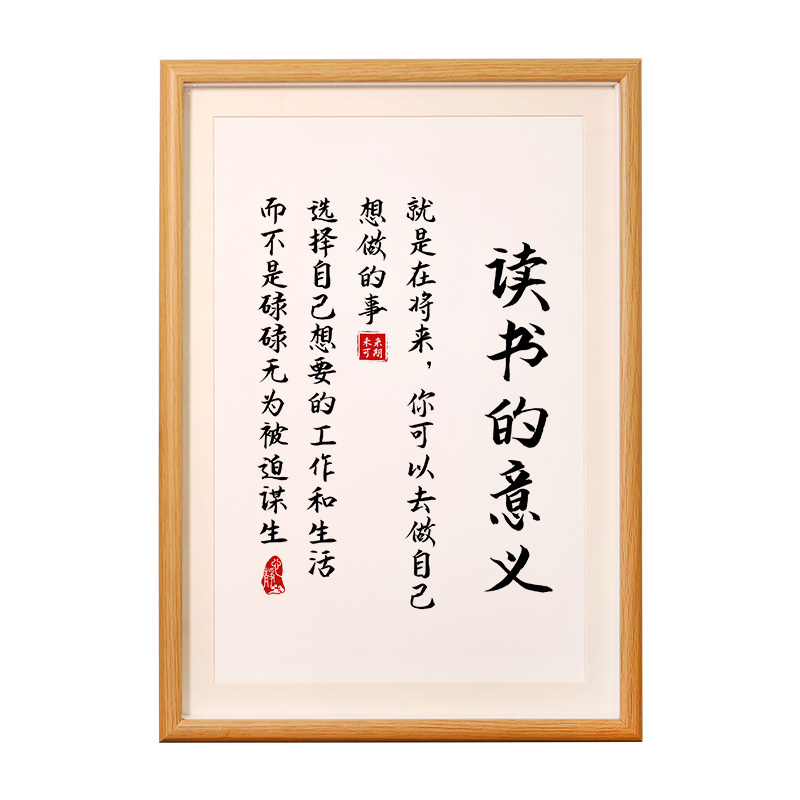 读书的意义
就是在将来，你可以去做自己
想做的事
未来
可期
选择自己想要的工作和生活
而不是碌碌无为被迫谋生